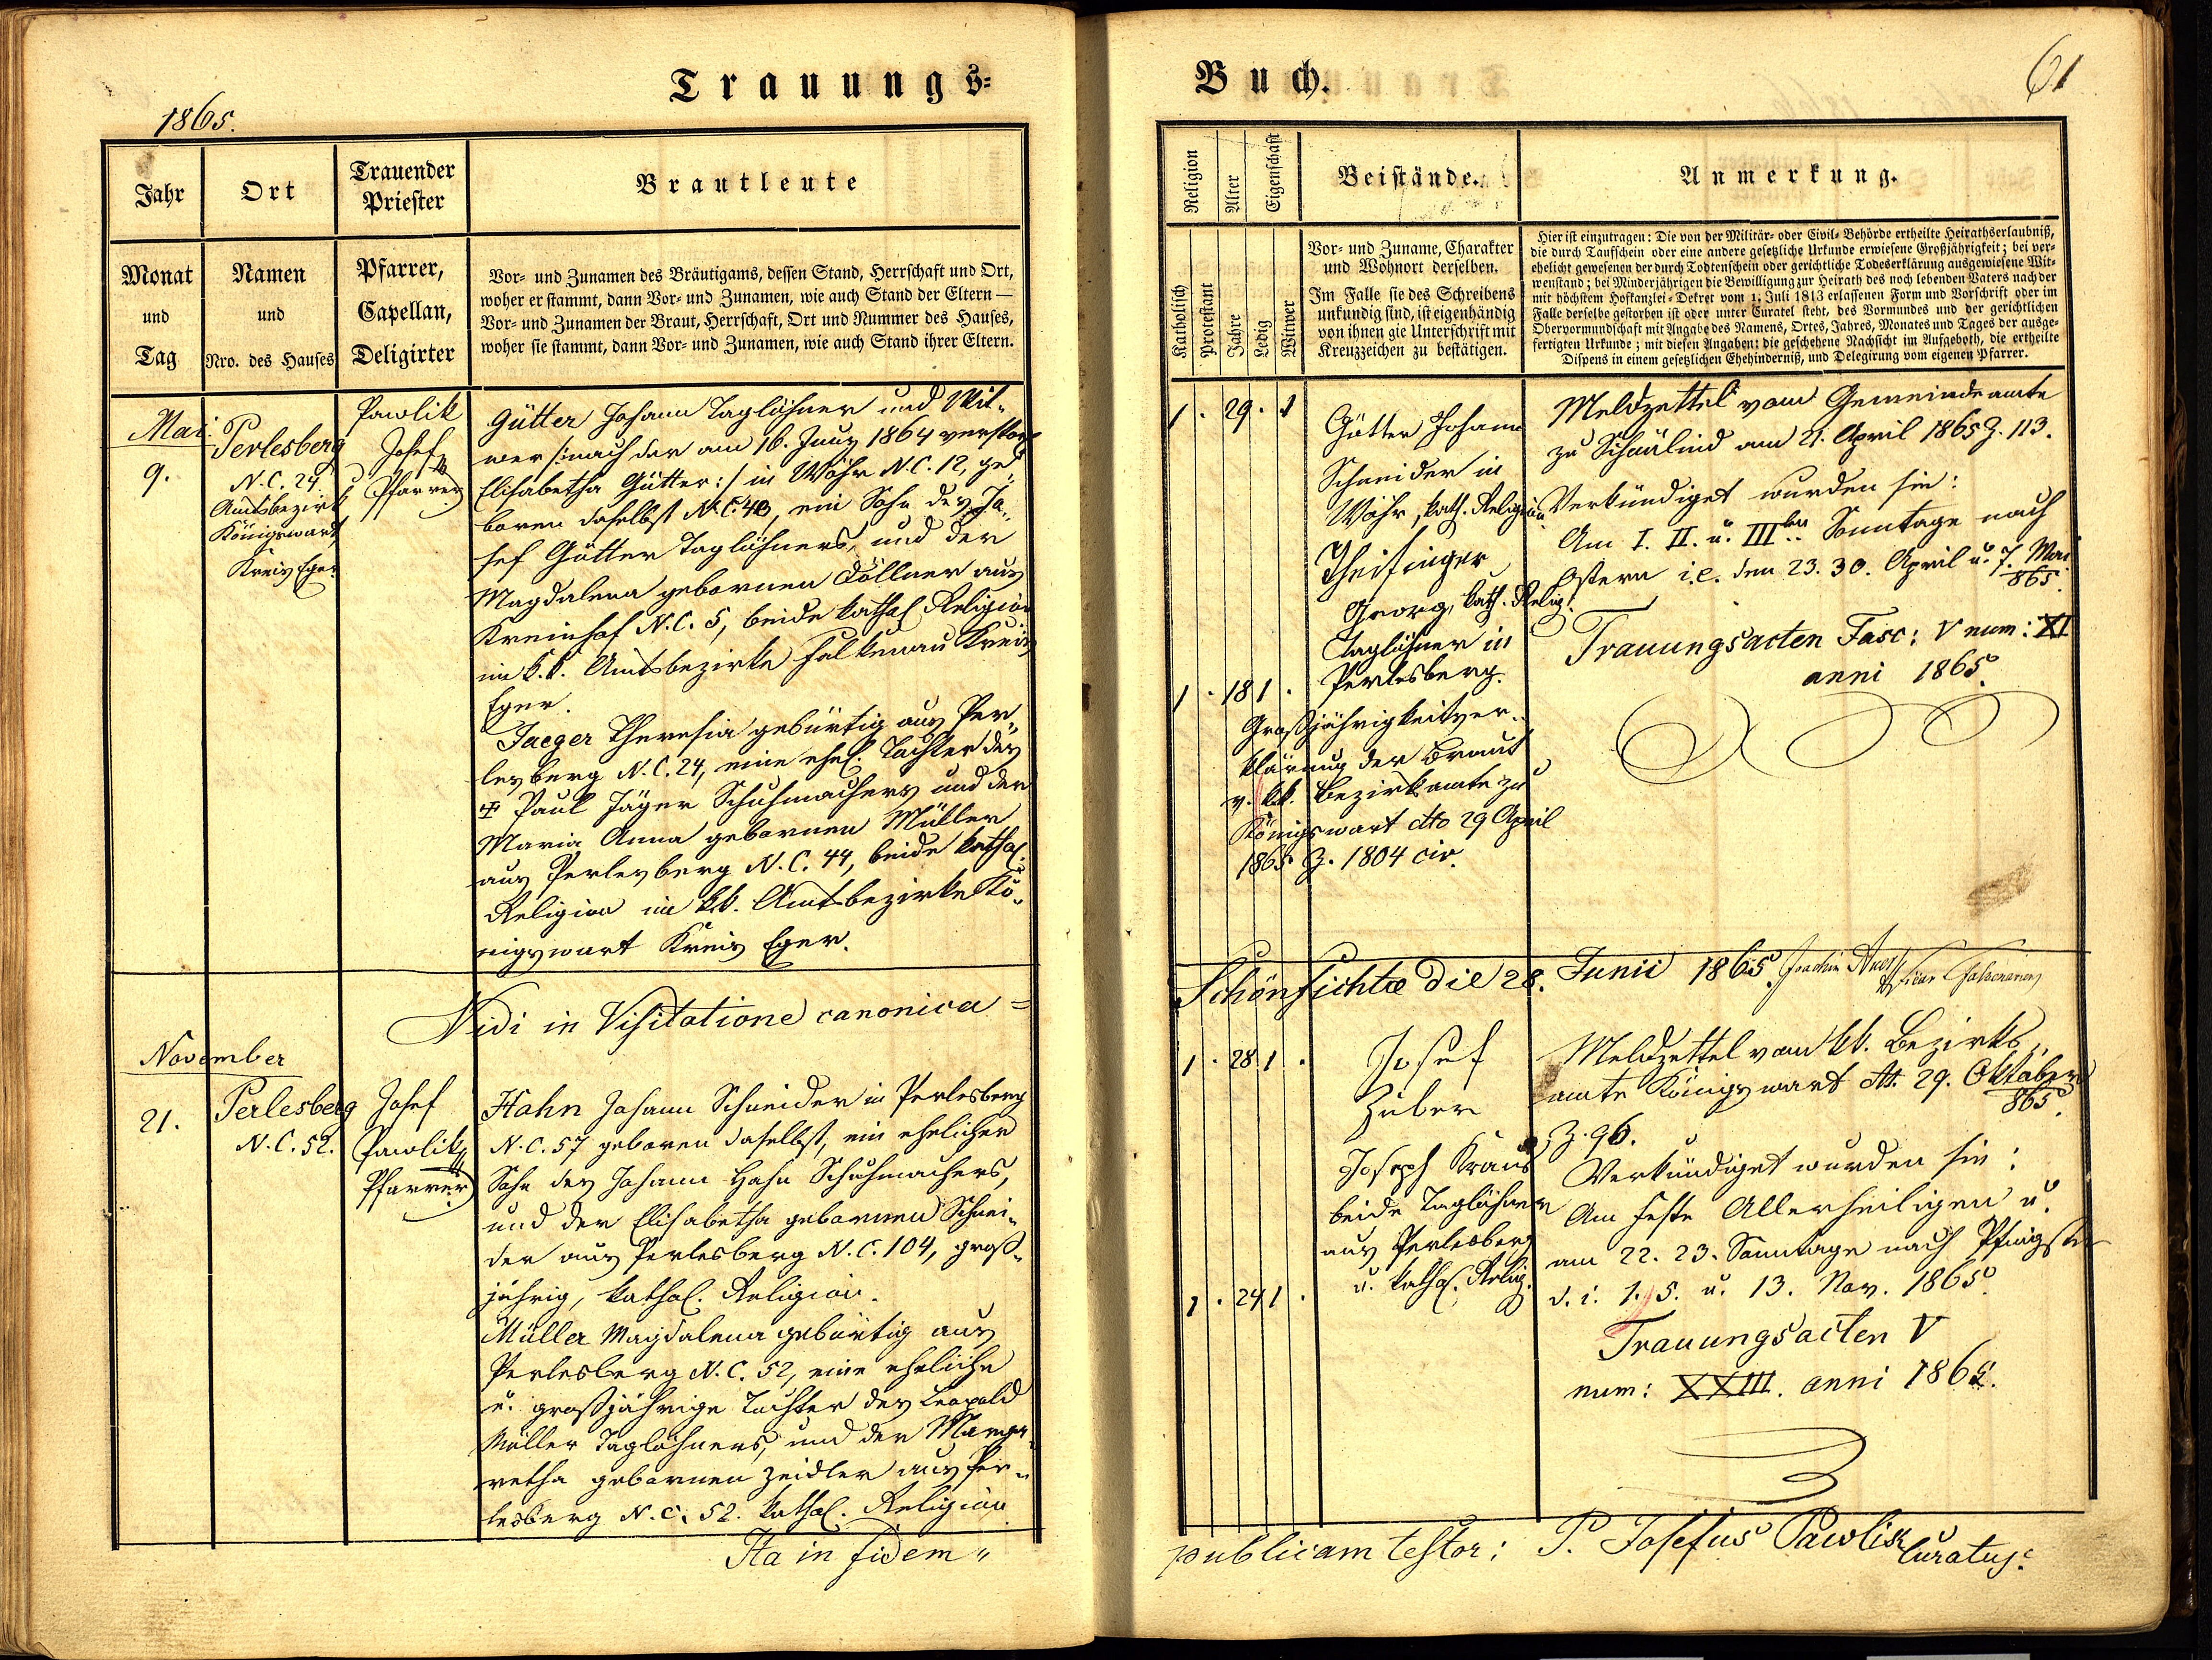 Trauungs-
1865.
Jahr
Ort
Trauender
Priester
Brautleute
Monat
und
Tag
Namen
und
Nro. des Hauses
Pfarrer,
Capellan,
Deligirter
Vor- und Zunamen des Bräutigams, dessen Stand, Herrschaft und Ort,
woher er stammt, dann Vor- und Zunamen, wie auch Stand der Eltern —
Vor- und Zunamen der Braut, Herrschaft, Ort und Nummer des Hauses,
woher sie stammt, dann Vor- und Zunamen, wie auch Stand ihrer Eltern.
Mai
9.
Perlesberg
N.C. 24.
Amtsbezirk
Königswart,
Kreis Eger.
Pawlik
Josef,
Pfarrer
Gütter Johann Taglöhner und Wit-
wer /:nach der am 16. Juny 1864 verstorb
Elisabetha Gütter:/ in Wöhr N.C. 12, ge-
boren daselbst N.C. 43, ein Sohn des Jo-
sef Gütter Taglöhners, und der
Magdalena gebornen Döllner aus
Kreinhof N.C. 5, beide kathol. Religion
im k.k. Amtsbezirke Falkenau Kreis
Eger.
Jaeger Theresia gebürtig aus Per-
lesberg N.C. 24, eine ehel. Tochter des
Paul Jäger Schuhmachers und der
Maria Anna gebornen Müller
aus Perlesberg N.C. 44, beide kathol.
Religion im k.k. Amtsbezirke Kö-
nigswart Kreis Eger.
Vidi in Visitatione canonica =
November
21.
Perlesberg
N.C. 52.
Josef
Pawlik,
Pfarrer
Hahn Johann Schneider in Perlesberg
N.C. 57 geboren daselbst, ein ehelicher
Sohn des Johann Hahn Schuhmachers,
und der Elisabetha gebornen Schnei-
der aus Perlesberg N.C. 104, groß-
jährig, kathol. Religion.
Müller Magdalena gebürtig aus
Perlesberg N.C. 52, eine eheliche
u. großjährige Tochter des Leopold
Müller Taglöhners, und der Marga-
retha gebornen Zeidler aus Per-
lesberg N.C. 52. kathol. Religion.
Ita in fidem "
Buch.
61
Religion
Alter
Eigenschaft
Beistände.
Anmerkung.
Katholisch
Protestant
Jahre
Ledig
Witwer
Vor- und Zuname, Charakter
und Wohnort derselben.
Im Falle sie des Schreibens
unkundig sind, ist eigenhändig
von ihnen gie Unterschrift mit
Kreuzzeichen zu bestätigen.
Hier ist einzutragen: Die von der Militär- oder Civil- Behörde ertheilte Heirathserlaubniß,
die durch Taufschein oder eine andere gesetzliche Urkunde erwiesene Großjährigkeit; bei ver-
ehelicht gewesenen der durch Todtenschein oder gerichtliche Todeserklärung ausgewiesene Wit-
wenstand; bei Minderjährigen die Bewilligung zur Heirath des noch lebenden Vaters nach der
mit höchstem Hofkanzlei-Dekret vom 1. Juli 1813 erlassenen Form und Vorschrift oder im
Falle derselbe gestorben ist oder unter Curatel steht, des Vormundes und der gerichtlichen
Obervormundschaft mit Angabe des Namens, Ortes, Jahres, Monates und Tages der ausge-
fertigten Urkunde; mit diesen Angaben: die geschehene Nachsicht im Aufgeboth, die ertheilte
Dispens in einem gesetzlichen Ehehinderniß, und Delegirung vom eigenen Pfarrer.
1 . 29 . 1
Gütter Johann
Schneider in
Wöhr, kath. Religion
Theisinger
Georg, kath. Relig.
Taglöhner in
Perlesberg.
1 . 18 1 .
Großjährigkeitser-
klärung der Braut
v. k.k. Bezirksamte zu
Königswart dto 29 April
1865 Z. 1804 civ.
Meldzettel vom Gemeindeamte
zu Schmlind am 21. April 1865 Z. 113.
Verkündiget wurden sie:
Am I. II. u. IIIten Sonntage nach
Ostern i.e. den 23. 30. April u. 7. Mai
865.
Trauungsacten Fasc: V num: XI
anni 1865.
Schönfichtae die 28. Junii 1865. Joachim
1 . 28 1 .
Josef
Zuber
Joseph Kraus
beide Taglöhner
aus Perlesberg
u. kathol. Relig.
1 . 24 1 .
Meldzettel vom kk. Bezirks-
amte Königswart dt. 29. Oktober
865.
Z. 96.
Verkündiget wurden sie:
Am Feste Allerheiligen u.
am 22. 23. Sonntage nach Pfingsten
d. i. 1. 5. u. 13. Nov. 1865.
Trauungsacten V
num: XXIII. anni 1865.
publicam testor: P. Josefus Pawlik
Curatus.